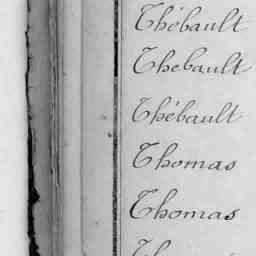 Thébault
Thebault
Thébault
Thomas
Thomas